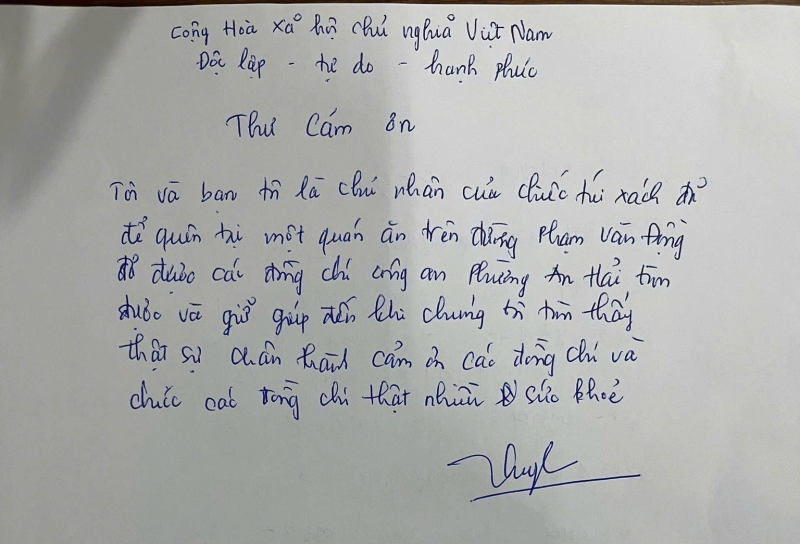 Cộng Hoà Xã hội chủ nghĩa Việt Nam
Độc lập - tự do - hạnh phúc
Thư Cảm ơn
Tôi và bạn tôi là chủ nhân của chiếc túi xách đã
để quên tại một quán ăn trên đường Phạm Văn Đồng
đã được các đồng chí công an Phường An Hải tìm
được và giữ giúp đến khi chúng tôi tìm thấy
thật sự chân thành cảm ơn các đồng chí và
chúc các đồng chí thật nhiều sức khoẻ